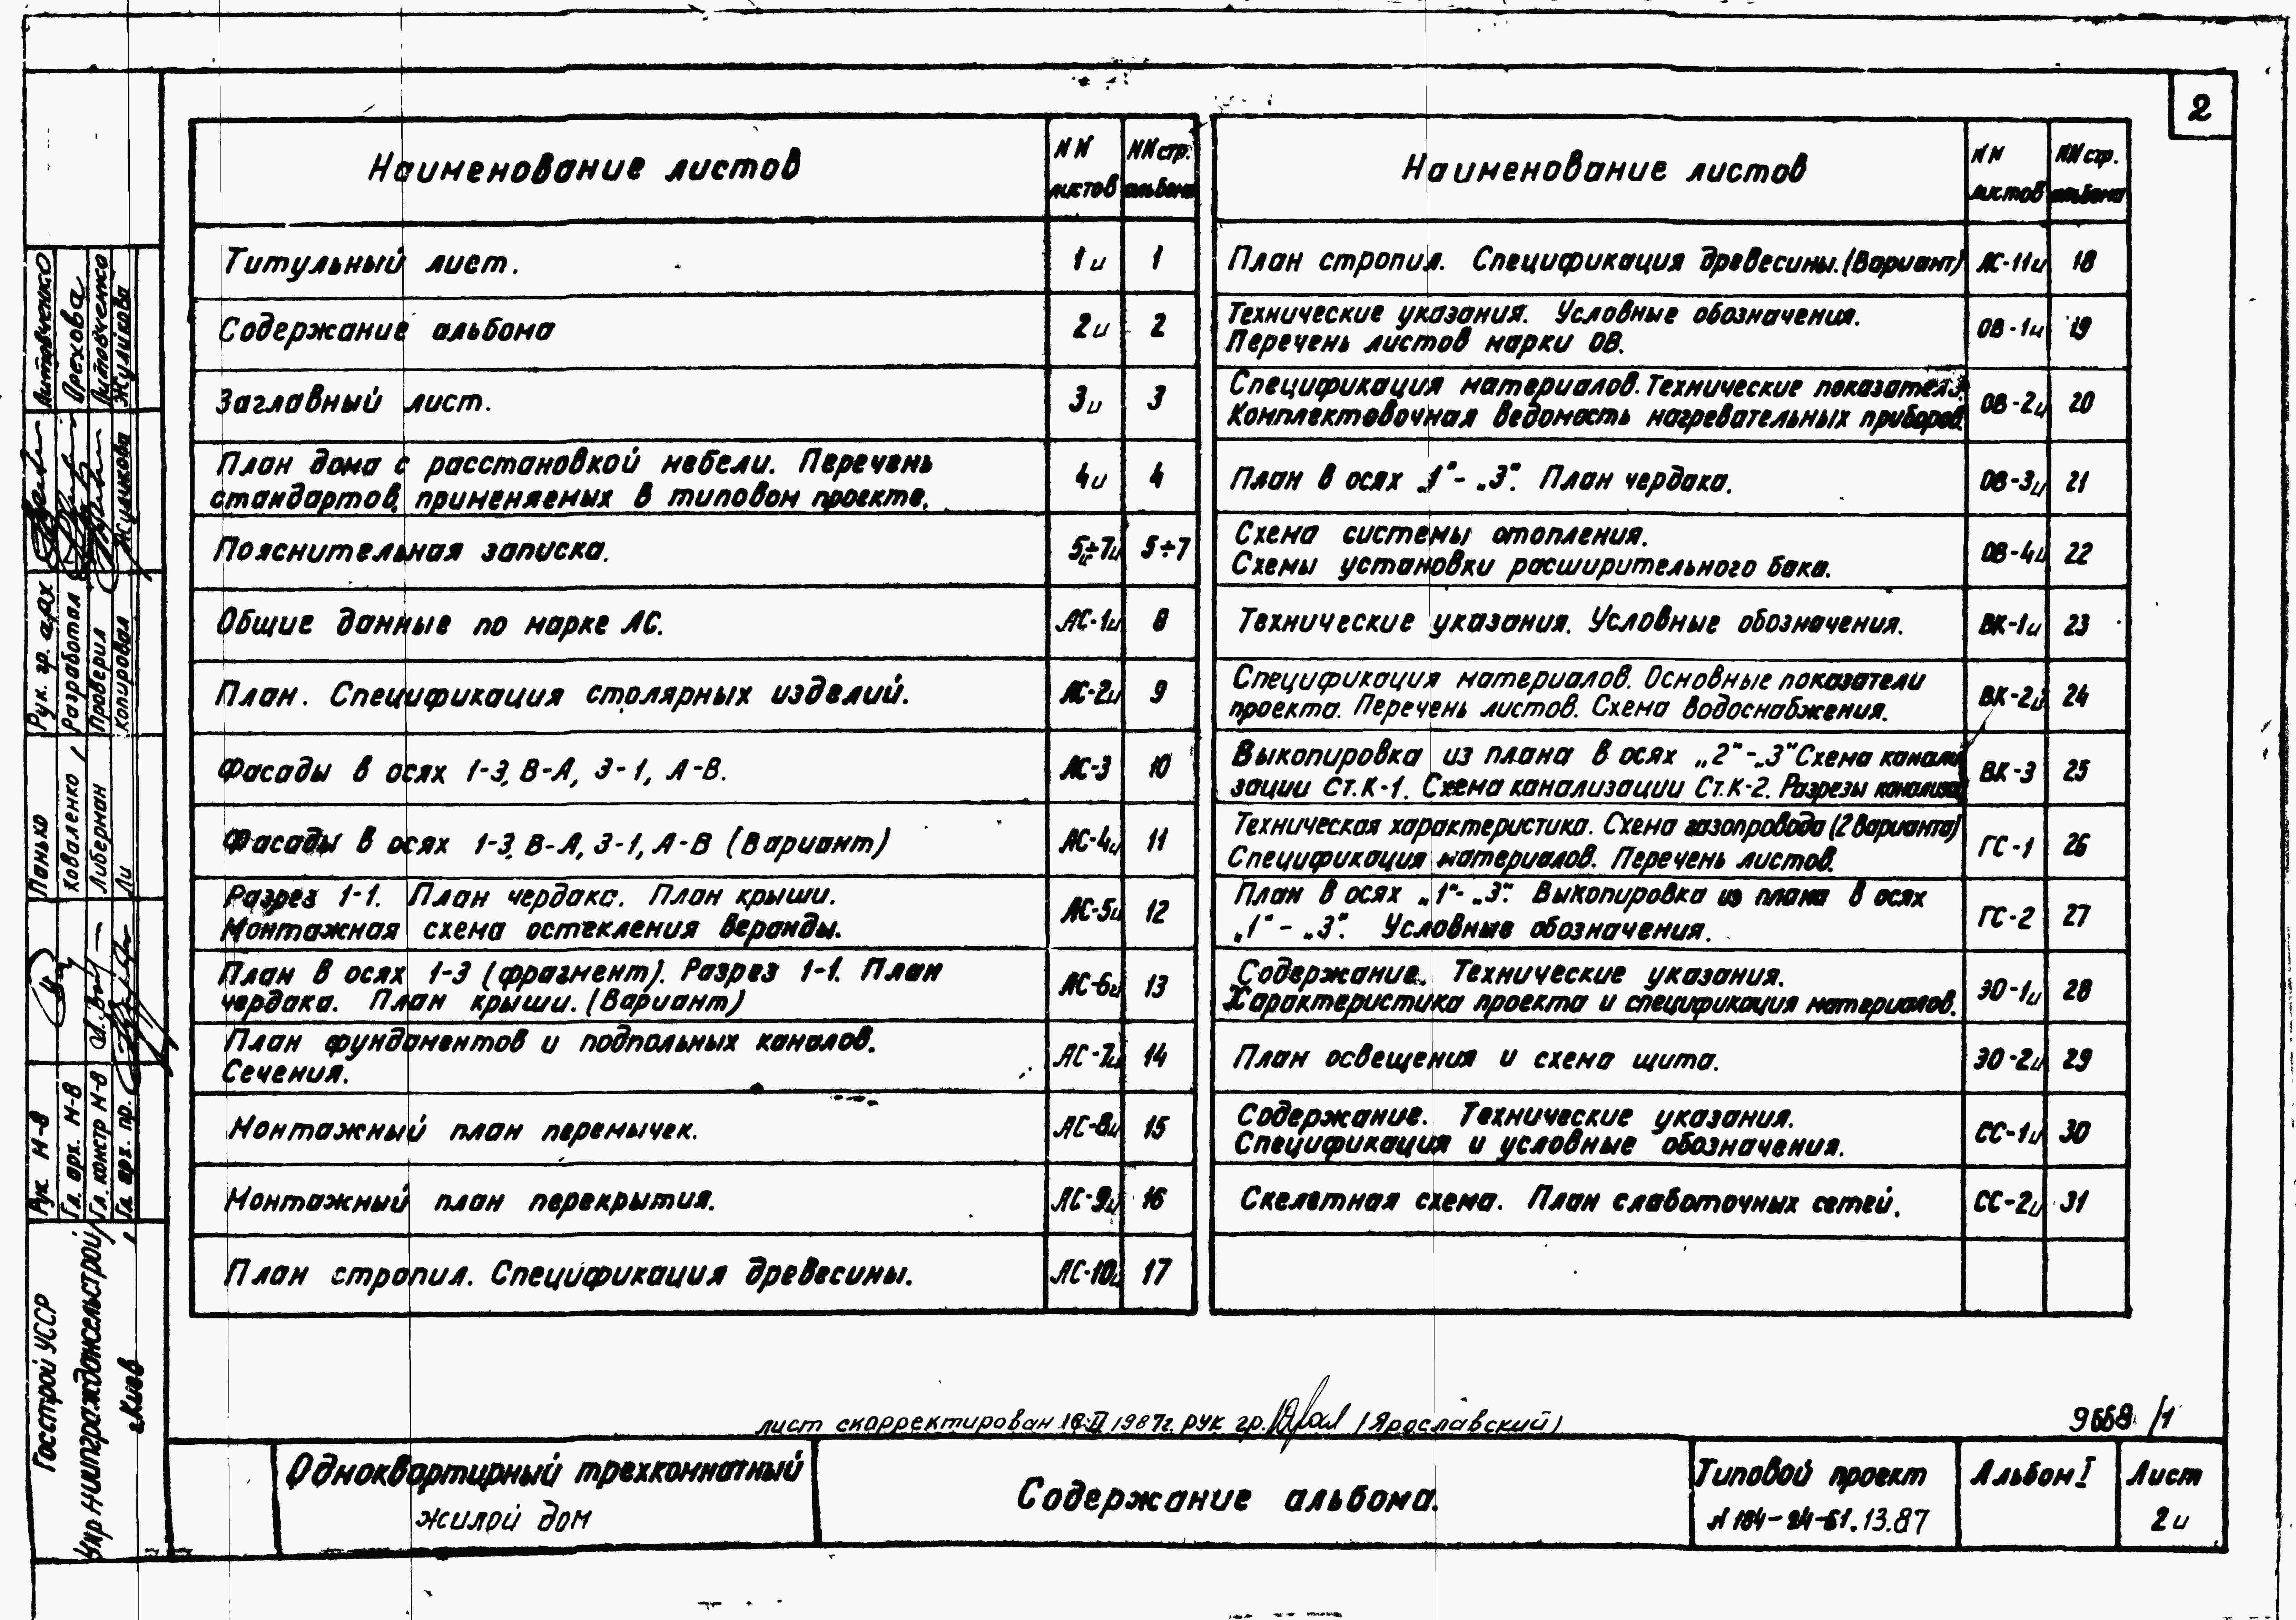 2
Наименование листов
NN листов
NN стр. альбома
Титульный лист. 1и 1
Содержание альбома 2и 2
Заглавный лист. 3и 3
План дома с расстановкой мебели. Перечень
стандартов, применяемых в типовом проекте. 4и 4
Пояснительная записка. 5и÷7и 5÷7
Общие данные по марке АС. АС-1и 8
План. Спецификация столярных изделий. АС-2и 9
Фасады в осях 1-3, В-А, 3-1, А-В. АС-3 10
Фасады в осях 1-3, В-А, 3-1, А-В (Вариант) АС-4и 11
Разрез 1-1. План чердака. План крыши.
Монтажная схема остекления веранды. АС-5и 12
План в осях 1-3 (фрагмент). Разрез 1-1. План
чердака. План крыши. (Вариант) АС-6и 13
План фундаментов и подпольных каналов.
Сечения. АС-7и 14
Монтажный план перемычек. АС-8и 15
Монтажный план перекрытия. АС-9и 16
План стропил. Спецификация древесины. АС-10и 17
Наименование листов
NN листов
NN стр. альбома
План стропил. Спецификация древесины. (Вариант) АС-11и 18
Технические указания. Условные обозначения.
Перечень листов марки ОВ. ОВ-1и 19
Спецификация материалов. Технические показатели.
Комплектовочная ведомость нагревательных приборов. ОВ-2и 20
План в осях „1"-„3". План чердака. ОВ-3и 21
Схема системы отопления.
Схемы установки расширительного бака. ОВ-4и 22
Технические указания. Условные обозначения. ВК-1и 23
Спецификация материалов. Основные показатели
проекта. Перечень листов. Схема водоснабжения. ВК-2и 24
Выкопировка из плана в осях „2"-„3" Схема канали
зации Ст.К-1. Схема канализации Ст.К-2. Разрезы ВК-3 25
Техническая характеристика. Схема газопровода (2 варианта)
Спецификация материалов. Перечень листов. ГС-1 26
План в осях „1"-„3". Выкопировка из плана в осях
„1"-„3". Условные обозначения. ГС-2 27
Содержание. Технические указания.
Характеристика проекта и спецификация материалов. ЭО-1и 28
План освещения и схема щита. ЭО-2и 29
Содержание. Технические указания.
Спецификация и условные обозначения. СС-1и 30
Скелетная схема. План слаботочных сетей. СС-2и 31
лист скорректирован 1987г. рук гр. (Ярославский)
9668/1
Одноквартирный трехкомнатный
жилой дом
Содержание альбома.
Типовой проект
N 184-24-61.13.87
Альбом I
Лист
2и
Госстрой УССР
УкрНИИПграждансельстрой
г.Киев
Рук М-в Панько
Гл. арх. М-в Коваленко
Гл. констр М-в Либерман
Гл. арх. пр. Ли
Рук. гр. арх Литовченко
Разработал Орехова
Проверил Литовченко
Копировал Жуликова Жуликова